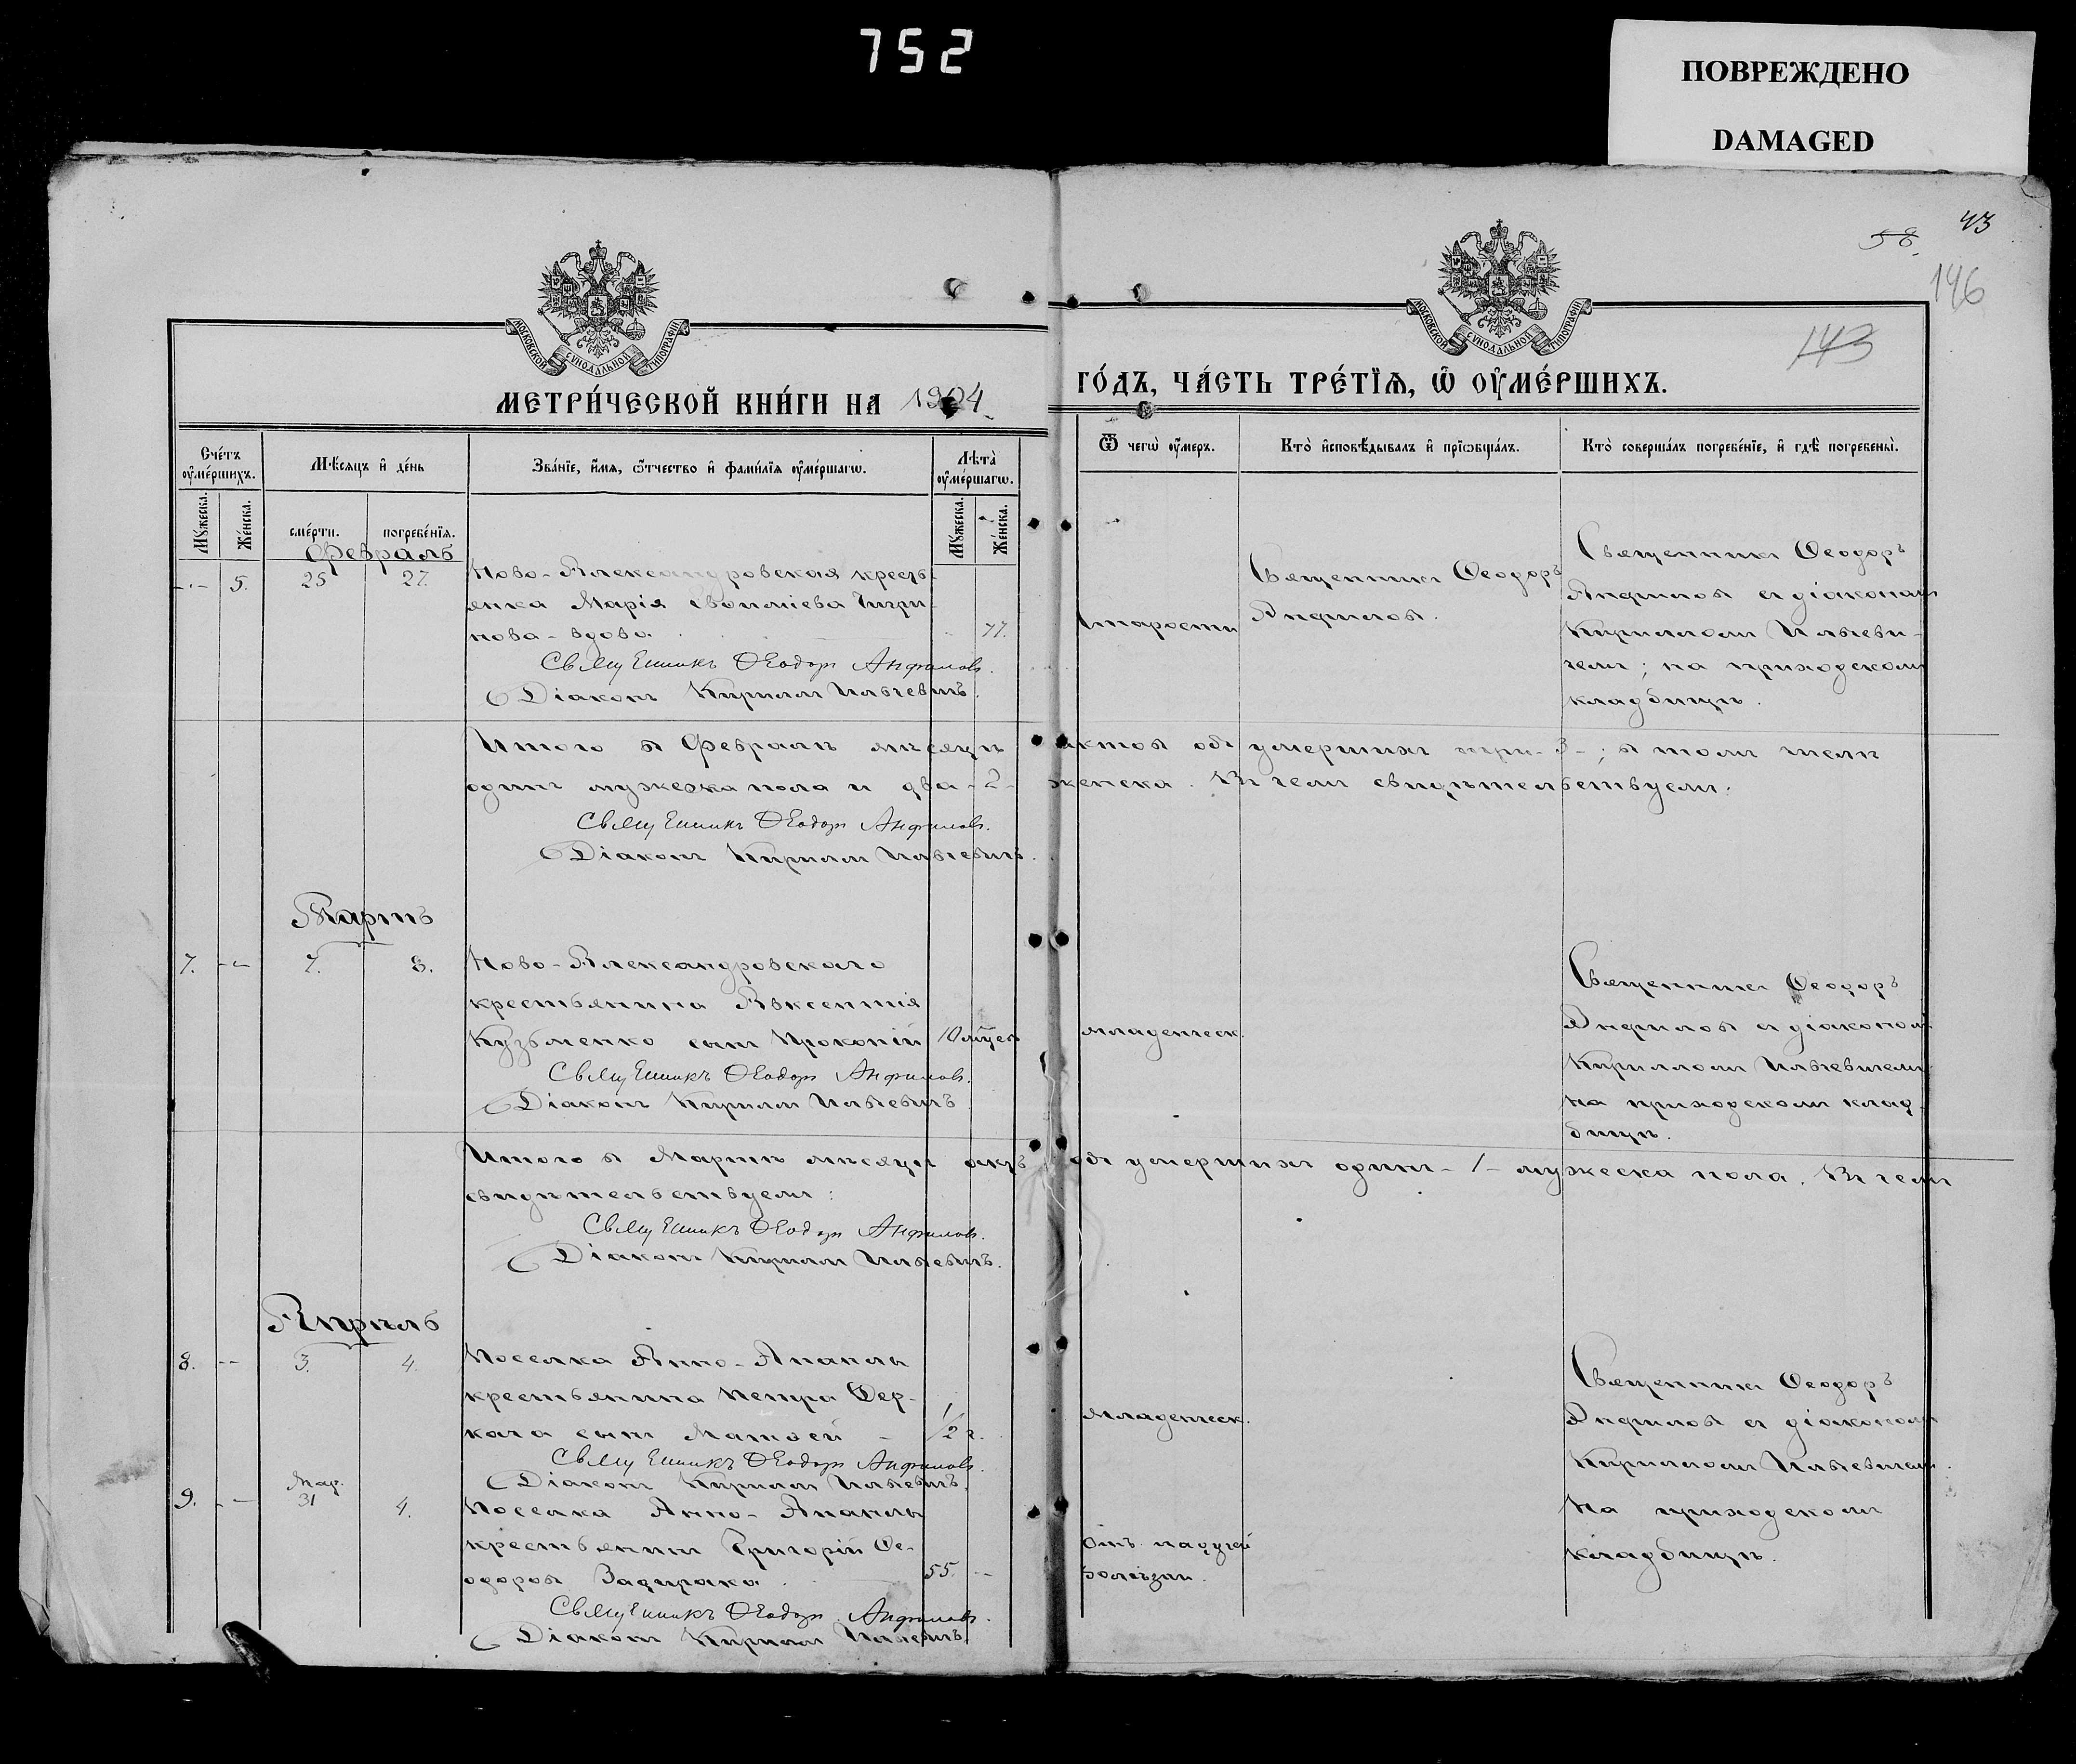 752
ПОВРЕЖДЕНО
DAMAGED
43
58.
146
143
МОСКОВСКОЙ СУНОДАЛЬНОЙ ТИПОГРАФІИ
МОСКОВСКОЙ СУНОДАЛЬНОЙ ТИПОГРАФІИ
МЕТРИ́ЧЕСКОЙ КНИ́ГИ НА 1904
ГО́ДЪ, ЧА́СТЬ ТРЕ́ТЇѦ, Ѽ ОУ҆МЕ́РШИХЪ.
Сче́тъ оу҆ме́ршихъ.
Мꙋ́жеска.
Же́нска.
Мѣ́сѧцъ и҆ де́нь
сме́рти.
погребе́нїѧ.
Зва́нїе, и҆́мѧ, ѻ҆́тчество и҆ фами́лїѧ оу҆ме́ршагѡ.
Лѣ̀та оу҆ме́ршагѡ.
Мꙋ́жеска.
Же́нска.
Ѿ чегѡ̀ оу҆́меръ.
Кто̀ и҆сповѣ́дывалъ и҆ прїѡбща́лъ.
Кто̀ соверша́лъ погребе́нїе, и҆ гдѣ̀ погребены̀.
Февраль
-·- 5. 25 27.
Ново-Александровская кресть-
янка Марія Евѳиміева Чигри-
нова-вдова. 77.
Священникъ Ѳеодоръ Анфиловъ.
Діаконъ Кириллъ Ильчевичъ.
Старости
Священникъ Ѳеодоръ
Анфиловъ.
Священникъ Ѳеодоръ
Анфиловъ съ діакономъ
Кирилломъ Ильчеви-
чемъ; на приходскомъ
кладбищѣ.
Итого въ Февралѣ мѣсяцѣ актовъ объ умершихъ три-3-; въ томъ числѣ
одинъ мужеска пола и два-2- женска. Въ чемъ свидѣтельствуемъ:
Священникъ Ѳеодоръ Анфиловъ.
Діаконъ Кириллъ Ильчевичъ.
Мартъ
7. -- 7. 8.
Ново-Александровскаго
крестьянина Авксентія
Кузьменко сынъ Прокопій 10 мѣсяц
Священникъ Ѳеодоръ Анфиловъ.
Діаконъ Кириллъ Ильчевичъ
младенческ.
Священникъ Ѳеодоръ
Анфиловъ съ діакономъ
Кирилломъ Ильчевичемъ
на приходскомъ клад-
бищѣ.
Итого въ Мартѣ мѣсяцѣ актъ объ умершихъ одинъ-1-мужеска пола. Въ чемъ
свидѣтельствуемъ:
Священникъ Ѳеодоръ Анфиловъ.
Діаконъ Кириллъ Ильчевичъ.
Апрѣль
8. -- 3. 4.
Поселка Анно-Анаплы
крестьянина Петра Дер-
кача сынъ Матвей - 1/2 г.
Священникъ Ѳеодоръ Анфиловъ.
Діаконъ Кириллъ Ильчевичъ.
младенческ.
Священникъ Ѳеодоръ
Анфиловъ съ діакономъ
Кирилломъ Ильчевичемъ.
На приходскомъ
кладбищѣ.
9. -- Мар. 31 4.
Поселка Анно-Анаплы
крестьянинъ Григорій Ѳе-
одоровъ Задирака. 55. --
Священникъ Ѳеодоръ Анфиловъ.
Діаконъ Кириллъ Ильчевичъ
Отъ падучей
болѣзни.